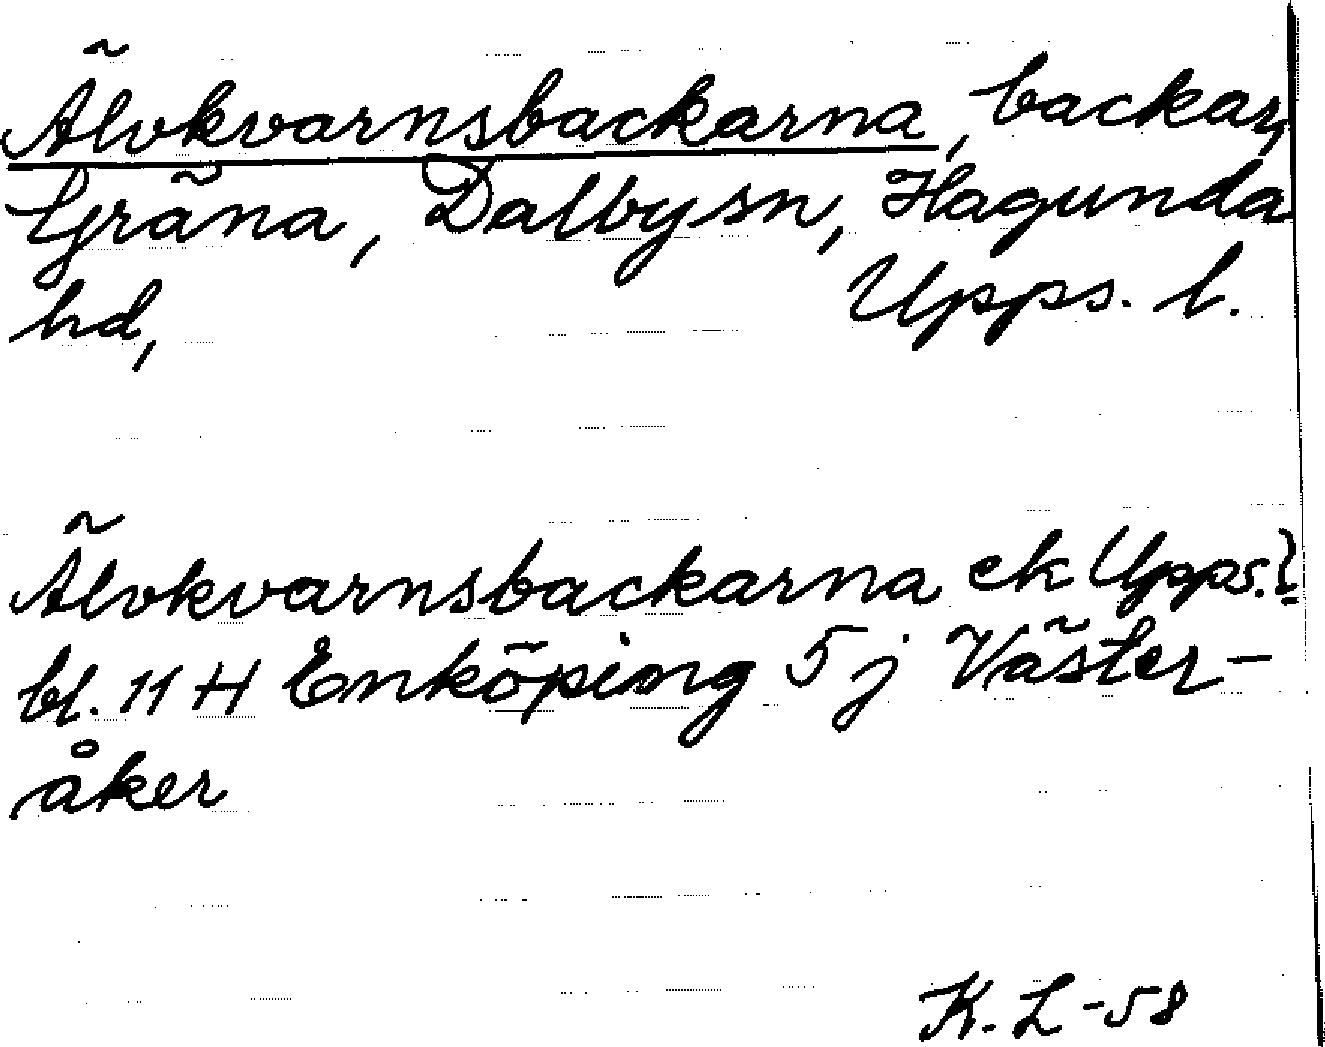 Älvkvarnsbackarna, backar,
Gräna, Dalby sn, Hagunda
hd, Upps. l.
Älvkvarnsbackarna ek Upps. l
bl. 11 H Enköping 5 j Väster-
åker
K. L -58